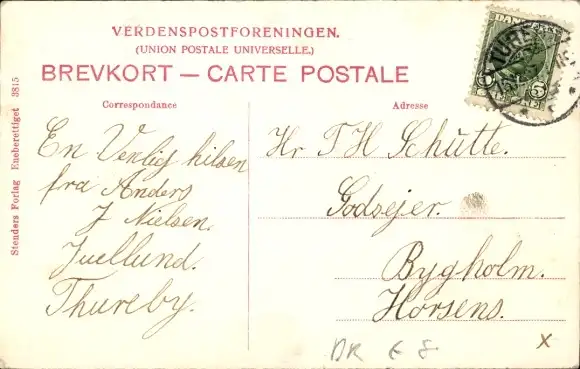 VERDENSPOSTFORENINGEN.
(UNION POSTALE UNIVERSELLE.)
BREVKORT — CARTE POSTALE
Correspondance
En Venlig hilsen
fra Anders
J Nielsen.
Juellund.
Thureby.
Adresse
Hr T H Schütte.
Godsejer.
Bygholm.
Horsens.
Stenders Forlag Eneberettiget 3815
DANMARK
5 5
DK 6 8
X